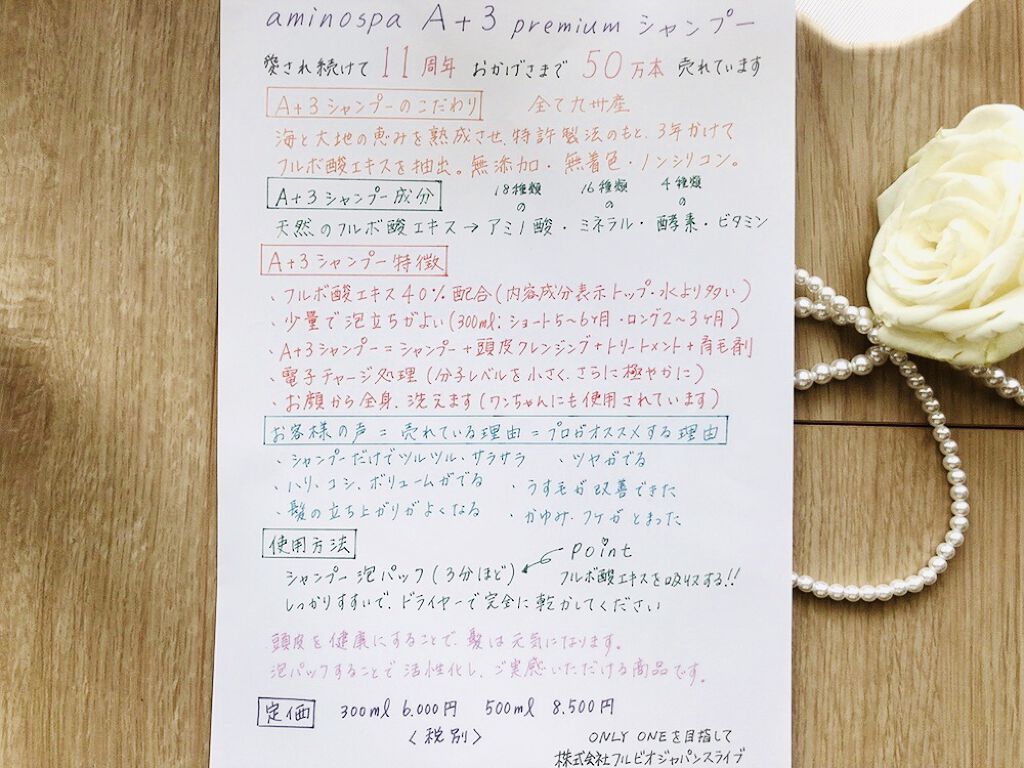 aminospa A+3 premium シャンプー
愛され続けて 11周年 おかげさまで 50万本 売れています
A+3シャンプーのこだわり 全て九州産
海と大地の恵みを熟成させ、特許製法のもと、3年かけて
フルボ酸エキスを抽出。無添加・無着色・ノンシリコン。
A+3シャンプー成分 18種類の 16種類の 4種類の
天然のフルボ酸エキス→アミノ酸・ミネラル・酵素・ビタミン
A+3シャンプー特徴
・フルボ酸エキス40%配合(内容成分表示トップ・水より多い)
・少量で泡立ちがよい(300ml:ショート5〜6ヶ月・ロング2〜3ヶ月)
・A+3シャンプー=シャンプー+頭皮クレンジング+トリートメント+育毛剤
・電子チャージ処理(分子レベルを小さく、さらに極やかに)
・お顔から全身、洗えます(ワンちゃんにも使用されています)
お客様の声=売れている理由=プロがオススメする理由
・シャンプーだけでツルツル・サラサラ ・ツヤがでる
・ハリ、コシ、ボリュームがでる ・うす毛が改善できた
・髪の立ち上がりがよくなる ・かゆみ・フケがとまった
使用方法
シャンプー泡パック(3分ほど) ← point
フルボ酸エキスを吸収する!!
しっかりすすいで、ドライヤーで完全に乾かしてください
頭皮を健康にすることで、髪は元気になります。
泡パックすることで活性化し、ご実感いただける商品です。
定価 300ml 6.000円 500ml 8.500円
<税別>
ONLY ONEを目指して
株式会社フルビオジャパンスライブ